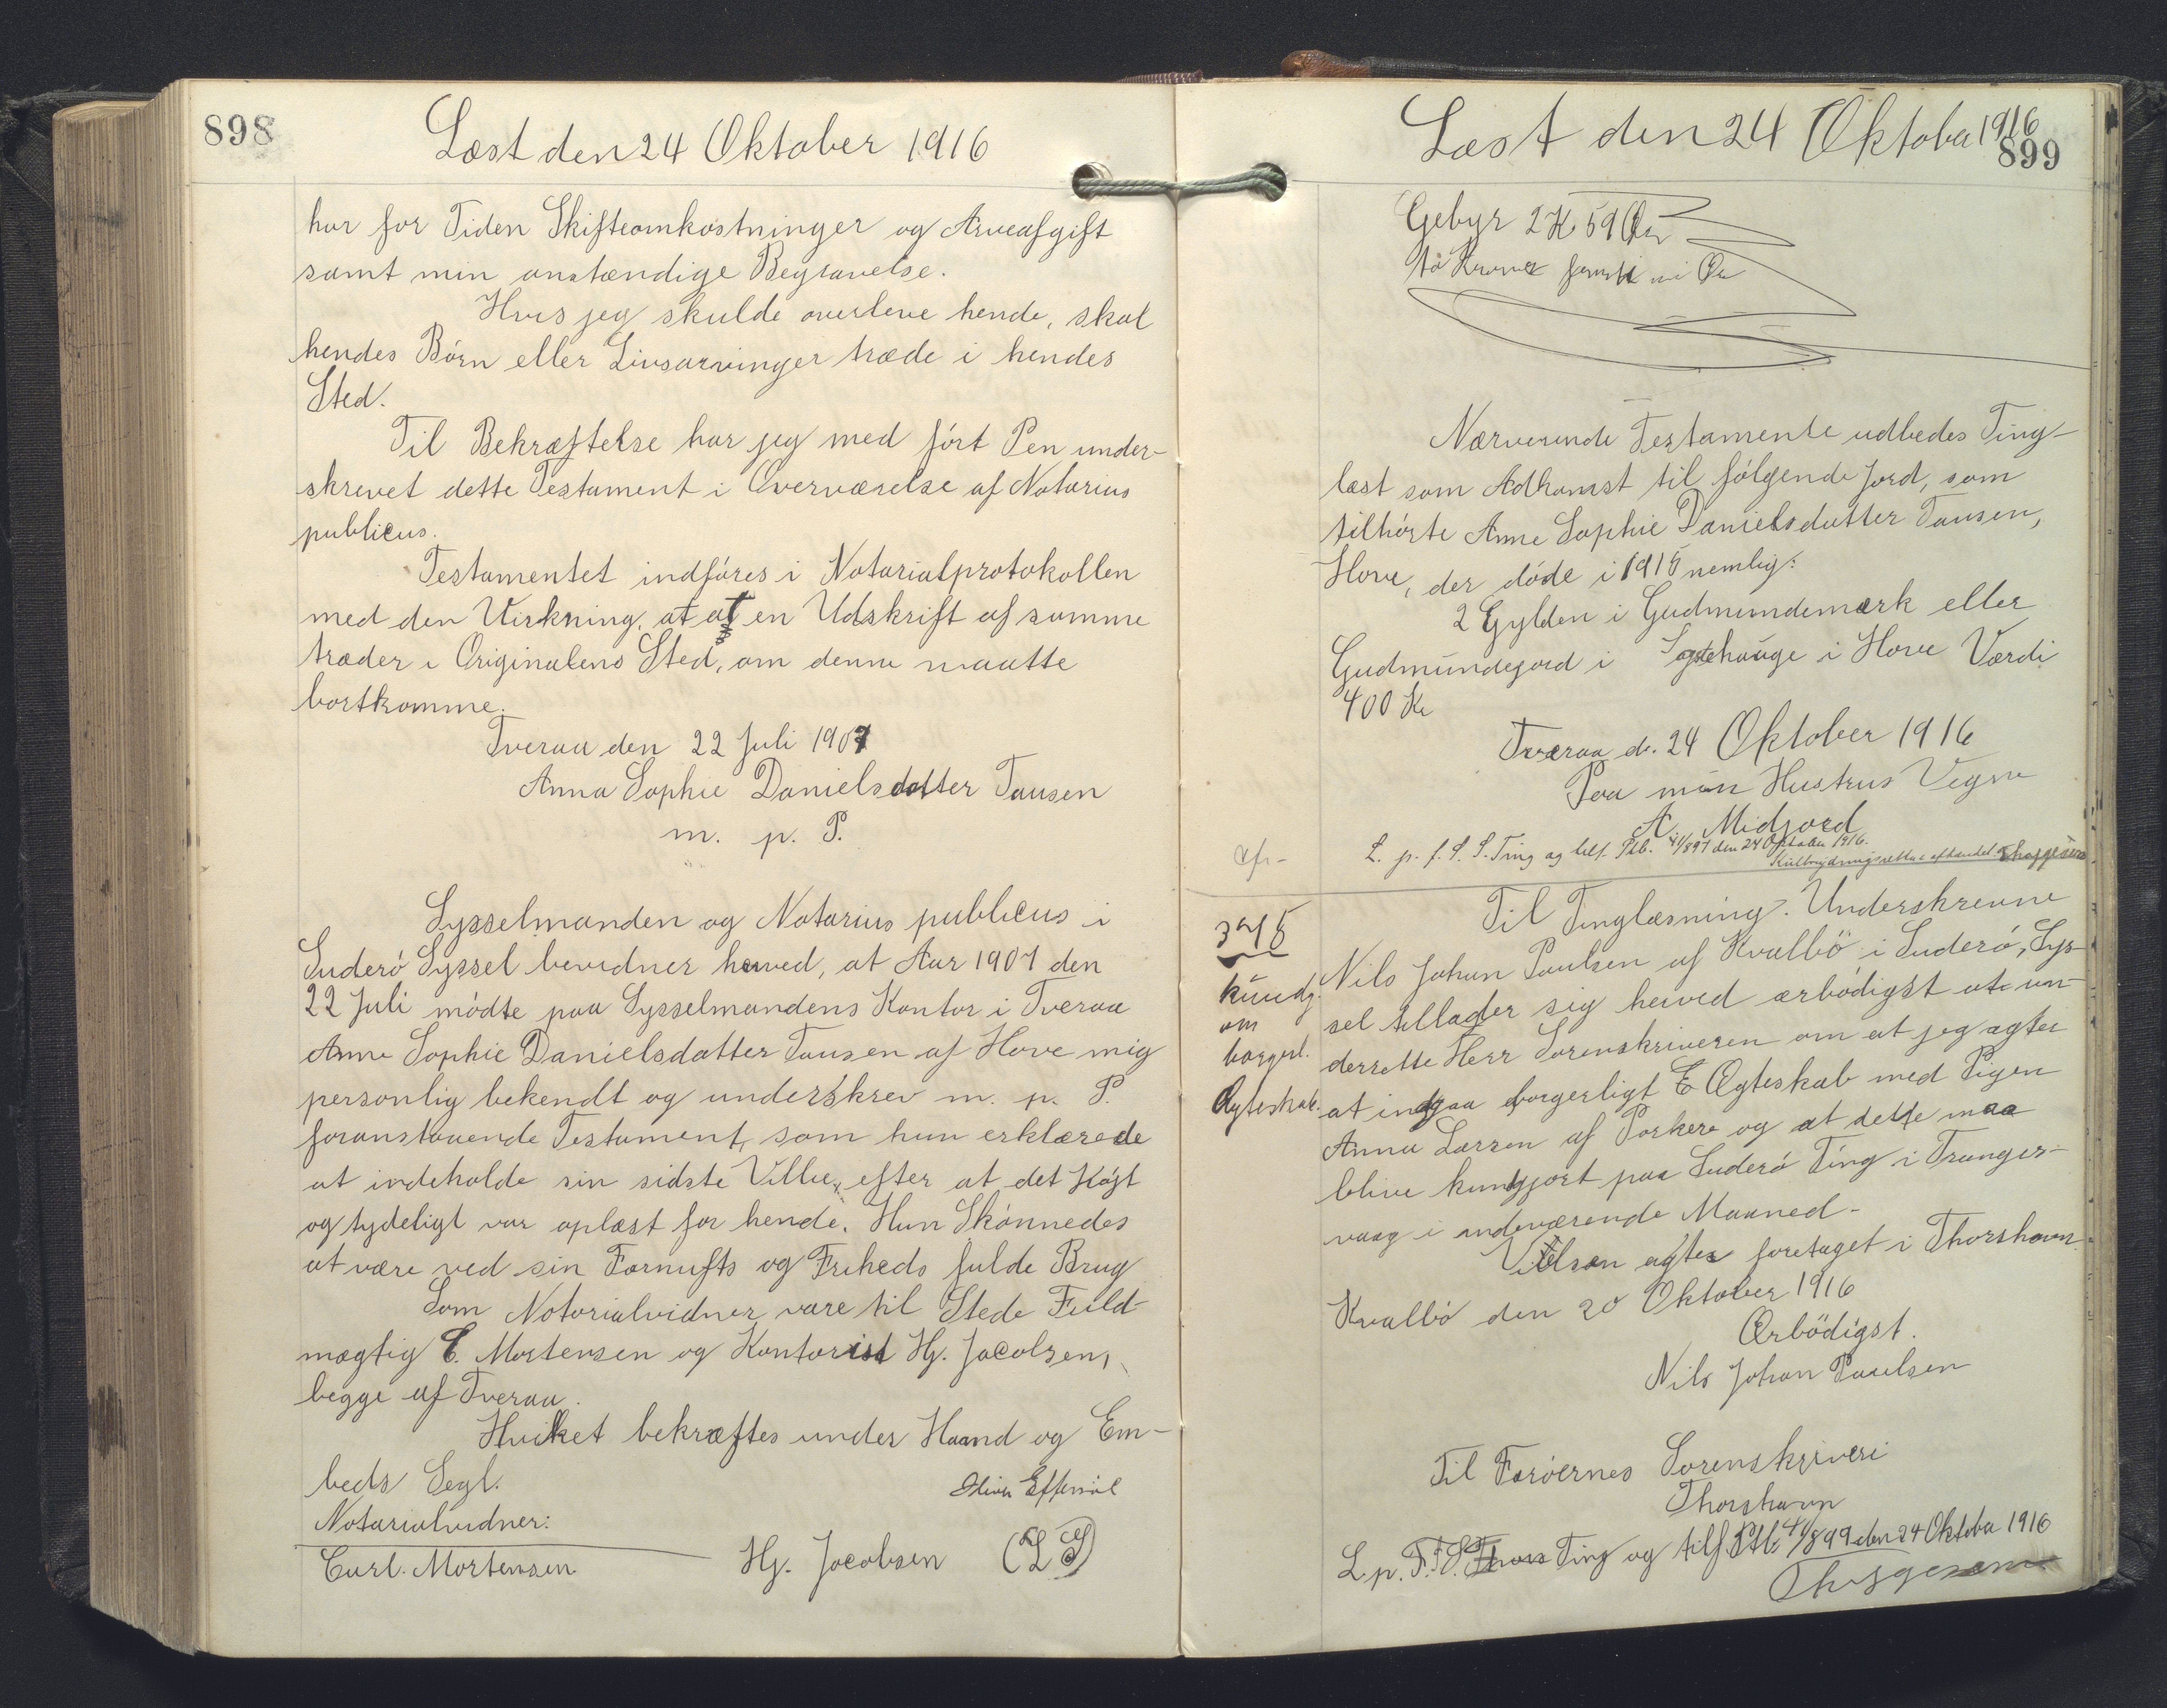 898
Læst den 24 Oktober 1916
har for Tiden Skifteomkostninger og Arveafgift
samt min anstændige Begravelse.
Hvis jeg skulde overleve hende, skal
hendes Børn eller Livsarvinger træde i hendes
Sted.
Til Bekræftelse har jeg med ført Pen under-
skrevet dette Testament i Overværelse af Notarius
publicus.
Testamentet indføres i Notarialprotokollen
med den Virkning, at at en Udskrift af samme
træder i Originalens Sted, om denne maatte
bortkomme.
Tveraa den 22 Juli 1907
Anna Sophie Danielsdatter Tausen
m. p. P.
Sysselmanden og Notarius publicus i
Suderø Syssel bevidner herved, at Aar 1907 den
22 Juli mødte paa Sysselmandens Kontor i Tveraa
Anne Sophie Danielsdatter Tausen af Hove mig
personlig bekendt og underskrev m. p. P.
foranstaaende Testament, som hun erklærede
at indeholde sin sidste Villie, efter at det højt
og tydeligt var oplæst for hende. Hun Skønnedes
at være ved sin Fornufts og Friheds fulde Brug
Som Notorialvidner vare til Stede Fuld-
mægtig C. Mortensen og Kontorist Hj. Jacobsen,
begge af Tveraa.
Hvilket bekræftes under Haand og Em-
beds Segl.
Oliver Effersøe
Notarialvidner:
Carl. Mortensen Hj. Jacobsen (L S)
Læst den 24 Oktober 1916
899
Gebyr 2 K 59 Øre
to Kroner femti ni Øre
Nærværende Testamente udbedes Ting-
læst som Adkomst til følgende Jord, som
tilhørte Anne Sophie Danielsdatter Tausen,
Hove, der døde i 1915 nemlig:
2 Gylden i Gudmundemærk eller
Gudmundegjord i i Hove Værdi
400 Kr
Tværaa d. 24 Oktober 1916
Paa min Hustrus Vegne
A. Midjord
afr- L. p. f. S. S. Ting og tilf. Ptb. 41/897 den 24 Oktober 1916.
Til Tinglæsning. Underskrevne
Nils Johan Poulsen af Kvalbö i Suderø, Sys-
sel tillader sig herved ærbödigst at un-
derrette Herr Sorenskriveren om at jeg agter
at indgaa borgerligt E Ægteskab med Pigen
Anna Larsen af Porkere og at dette maa
blive kundgjort paa Suderø Ting i Trangis-
vaag i indeværende Maaned-
kundg.
om
borgerl.
Ægteskab.
Vielsen agtes foretaget i Thorshavn
Kvalbö den 20 Oktober 1916
Ærbödigst.
Nils Johan Poulsen
Til Færøernes Sorenskriveri
Thorshavn
L. p. F. S. S. Ting og tilf Ptb 41/899 den 24 Oktober 1916